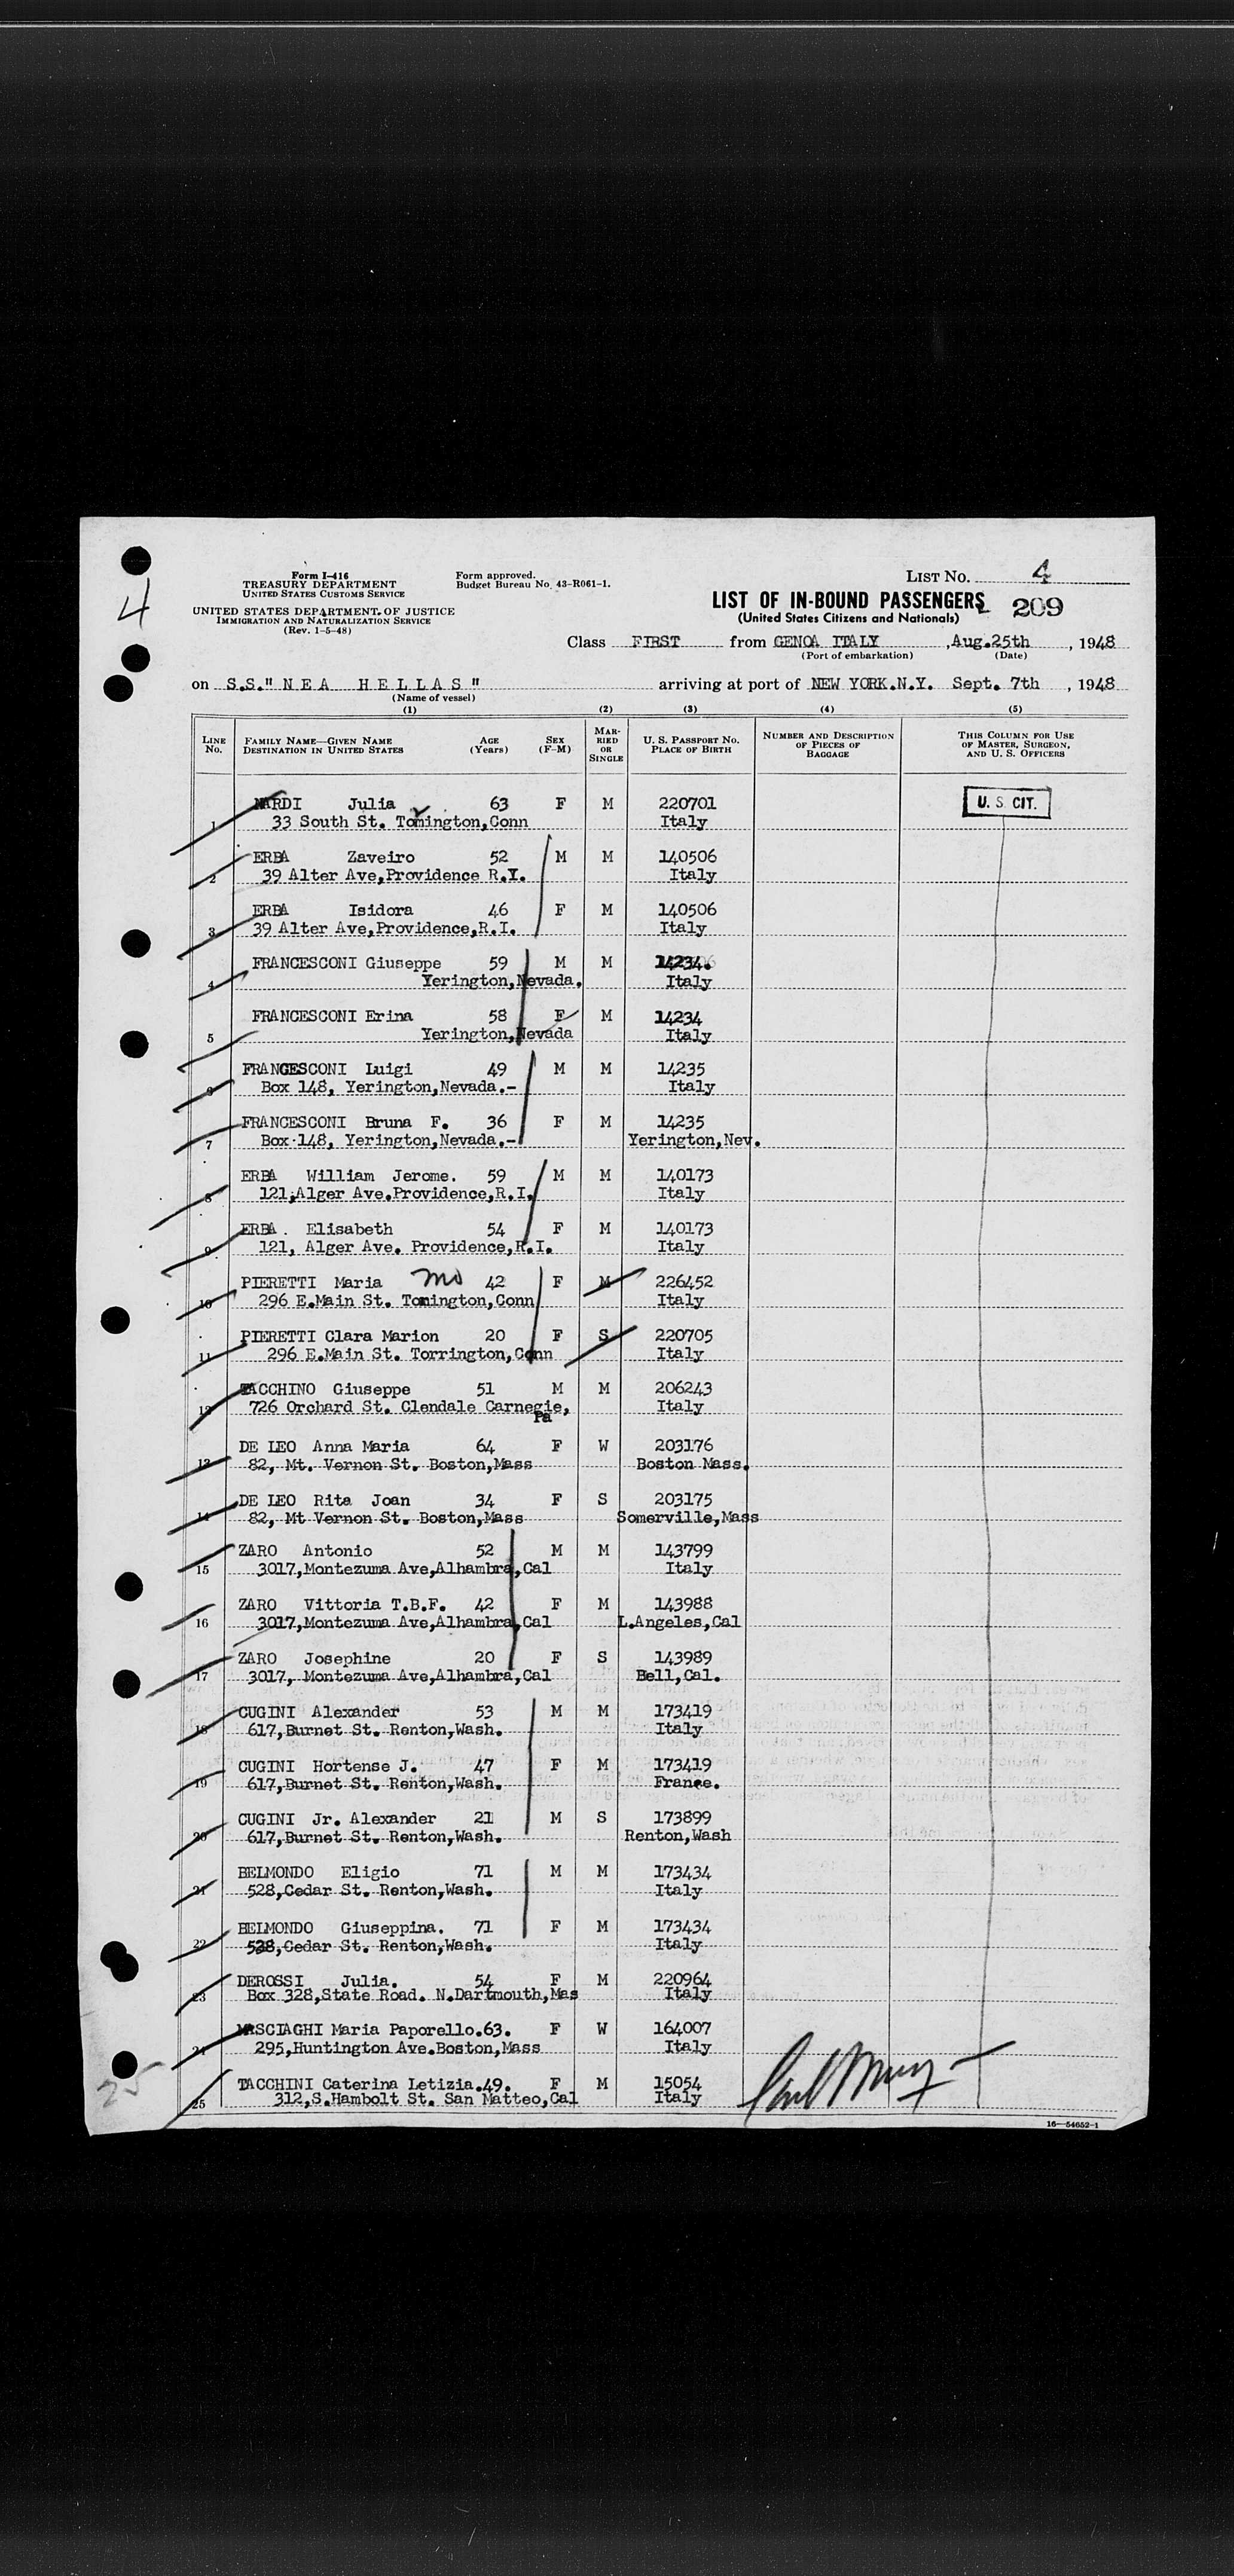 4
Form I-416
TREASURY DEPARTMENT
UNITED STATES CUSTOMS SERVICE
UNITED STATES DEPARTMENT OF JUSTICE
IMMIGRATION AND NATURALIZATION SERVICE
(Rev. 1-5-48)
Form approved.
Budget Bureau No. 43-R061-1.
LIST No. 4
LIST OF IN-BOUND PASSENGERS 209
(United States Citizens and Nationals)
Class FIRST from GENOA ITALY ,Aug.25th , 1948
(Port of embarkation) (Date)
on S.S." N E A H E L L A S " arriving at port of NEW YORK.N.Y. Sept. 7th , 1948
(Name of vessel)
(1) (2) (3) (4) (5)
LINE No. FAMILY NAME—GIVEN NAME DESTINATION IN UNITED STATES AGE (Years) SEX (F-M) MARRIED OR SINGLE U. S. PASSPORT No. PLACE OF BIRTH NUMBER AND DESCRIPTION OF PIECES OF BAGGAGE THIS COLUMN FOR USE OF MASTER, SURGEON, AND U. S. OFFICERS
NARDI Julia 63 F M 220701 U. S. CIT.
1 33 South St. Tomington,Conn Italy
ERBA Zaveiro 52 M M 140506
2 39 Alter Ave,Providence R.I. Italy
ERBA Isidora 46 F M 140506
3 39 Alter Ave,Providence,R.I. Italy
FRANCESCONI Giuseppe 59 M M 14234.
4 Yerington,Nevada. Italy
FRANCESCONI Erina 58 F M 14234
5 Yerington,Nevada Italy
FRANCESCONI Luigi 49 M M 14235
6 Box 148, Yerington,Nevada.- Italy
FRANCESCONI Bruna F. 36 F M 14235
7 Box 148, Yerington,Nevada.- Yerington,Nev.
ERBA William Jerome. 59 M M 140173
8 121,Alger Ave.Providence,R.I. Italy
ERBA. Elisabeth 54 F M 140173
9 121, Alger Ave. Providence,R.I. Italy
PIERETTI Maria mo 42 F M 226452
10 296 E.Main St. Tomington,Conn Italy
PIERETTI Clara Marion 20 F S 220705
11 296 E.Main St. Torrington,Conn Italy
TACCHINO Giuseppe 51 M M 206243
12 726 Orchard St. Clendale Carnegie, Italy
Pa
DE LEO Anna Maria 64 F W 203176
13 82, Mt. Vernon St. Boston,Mass Boston Mass.
DE LEO Rita Joan 34 F S 203175
14 82, Mt Vernon St. Boston,Mass Somerville,Mass
ZARO Antonio 52 M M 143799
15 3017,Montezuma Ave,Alhambra,Cal Italy
ZARO Vittoria T.B.F. 42 F M 143988
16 3017,Montezuma Ave,Alhambra,Cal L.Angeles,Cal
ZARO Josephine 20 F S 143989
17 3017, Montezuma Ave,Alhambra,Cal Bell,Cal.
CUGINI Alexander 53 M M 173419
18 617,Burnet St. Renton,Wash. Italy
CUGINI Hortense J. 47 F M 173419
19 617,Burnet St. Renton,Wash. France.
CUGINI Jr. Alexander 21 M S 173899
20 617,Burnet St. Renton,Wash. Renton,Wash
BELMONDO Eligio 71 M M 173434
21 528,Cedar St. Renton,Wash. Italy
BELMONDO Giuseppina. 71 F M 173434
22 528,Cedar St. Renton,Wash. Italy
DEROSSI Julia. 54 F M 220964
23 Box 328,State Road. N.Dartmouth,Mas Italy
MASCIAGHI Maria Paporello.63. F W 164007
24 295,Huntington Ave.Boston,Mass Italy
TACCHINI Caterina Letizia.49. F M 15054
25 312,S.Hambolt St. San Matteo,Cal Italy
25
16—54652-1